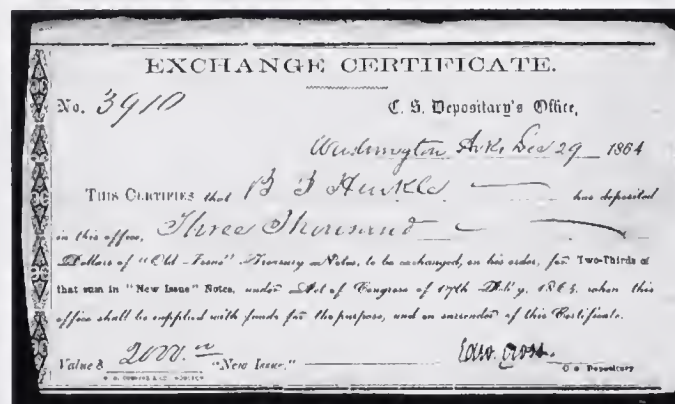 EXCHANGE CERTIFICATE.
No. 3910 C. S. Depositary's Office,
Washington Arks Dec 29 1864
THIS CERTIFIES that B F Hinkle has deposited
in this office, Three Thousand
Dollars of "Old-Issue" Treasury Notes, to be exchanged, on his order, for Two-Thirds of
that sum in "New Issue" Notes, under Act of Congress of 17th Feb'y, 1864, when this
office shall be supplied with funds for the purpose, and on surrender of this Certificate.
Value $ 2000.00 "New Issue." Edw. Cross.
C S Depositary